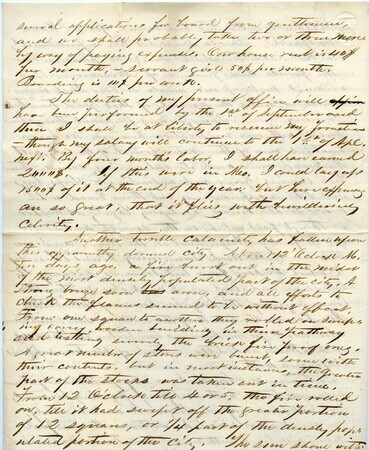 several applications for board from gentlemen,
and we shall probably take two or three more
by way of paying expenses. Our house rent is 40$
per month. Servant girls 50$ per month.
Boarding is 10$ per week.
The duties of my present office will
have been performed by the 1st of September and
then I shall be at liberty to resume my
though my salary will continue to the 1st of
By four months labor, I shall have earned
2000$. If this were in Mo. I could lay up
1500$ of it at the end of the year. But here expenses
are so great, that it flies with bewildering
celerity.
Another terrible calamity has fallen upon
this apparently doomed city. About 12 Oclock M.
days ago a fire burst out in the midst
of the most densely populated part of the city. A
strong breeze and all efforts to
check the flames seemed to be without effect.
From one square to another they rolled on sweep-
ing every wooden building in their pathway
and listing the brick fire proof ones.
A great number of stores were burnt, some with
their contents, but in most instances, the greater
part of the stocks was taken out in time.
From 12 Oclock till 4 or 5, the fire rolled
on, till it had swept off the greater portion
of 12 squares, or 1/4 part of the densely pop-
ulated portion of the City. The sun shone with